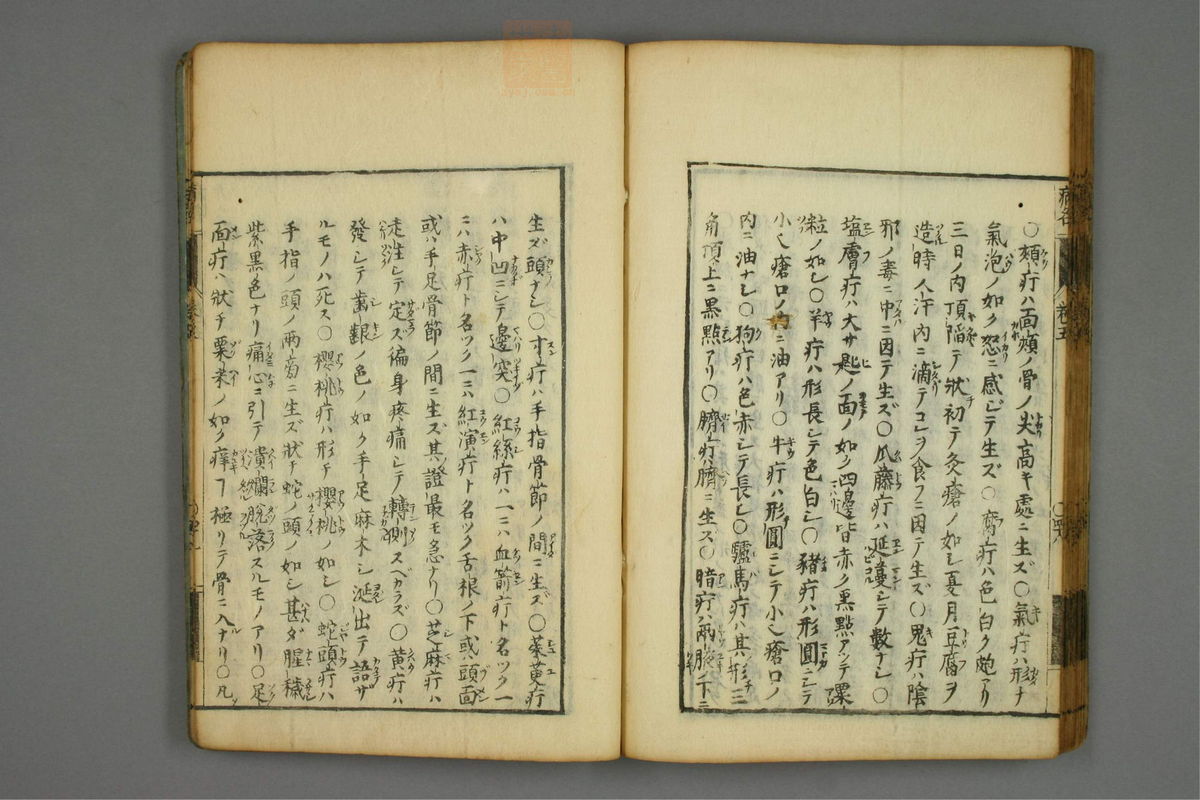 〇頬疔ハ面頬ノ骨ノ尖高キ處ニ生ズ〇氣疔ハ形チ
氣泡ノ如ク怒ニ感ジテ生ズ〇腐疔ハ色白ク皰アリ
三日ノ内頂陷テ狀初テ灸瘡ノ如シ夏月豆腐ヲ
造時人汗内ニ滴テコレヲ食フニ因テ生ズ〇鬼疔ハ陰
邪ノ毒ニ中ニ因テ生ズ〇瓜藤疔ハ延蔓シテ數ナシ〇
塩膚疔ハ大サ匙ノ面ノ如ク四邊皆赤ク黒點アツテ
粒ノ如シ〇羊疔ハ形長シテ色白シ〇豬疔ハ形圓ニシテ
小ク瘡口ノ ニ油アリ〇牛疔ハ形圓ニシテ小ク瘡口ノ
内ニ油ナシ〇狗疔ハ色赤シテ長シ〇驢馬疔ハ其形三
角頂上ニ黒點アリ〇臍疔ハ臍ニ生ズ〇暗疔ハ兩腋ノ下ニ
生ズ頭ナシ〇寸疔ハ手指骨節ノ間ニ生ズ〇茱萸疔
ハ中凹ニシテ邊突〇紅絲疔ハ一ニハ血箭疔ト名ヅク一
ニハ赤疔ト名ヅク一ニハ紅演疔ト名ヅク舌根ノ下或ハ頭面
或ハ手足骨節ノ間ニ生ズ其證最モ急ナリ〇芝麻疔ハ
走注シテ定ズ徧身疼痛シテ轉側スベカラズ〇黄疔ハ
發シテ歯齦ノ色ノ如ク手足麻木シ涎出テ語サ
ルモノハ死ス〇櫻桃疔ハ形チ櫻桃ノ如シ〇蛇頭疔ハ
手指ノ頭ノ兩旁ニ生ズ狀チ蛇ノ頭ノ如シ甚ダ腥穢
紫黒色ナリ痛心ニ引テ潰爛脱落スルモノアリ〇足
面疔ハ狀チ粟米ノ如ク痒フ極リテ骨ニ入ナリ〇凡